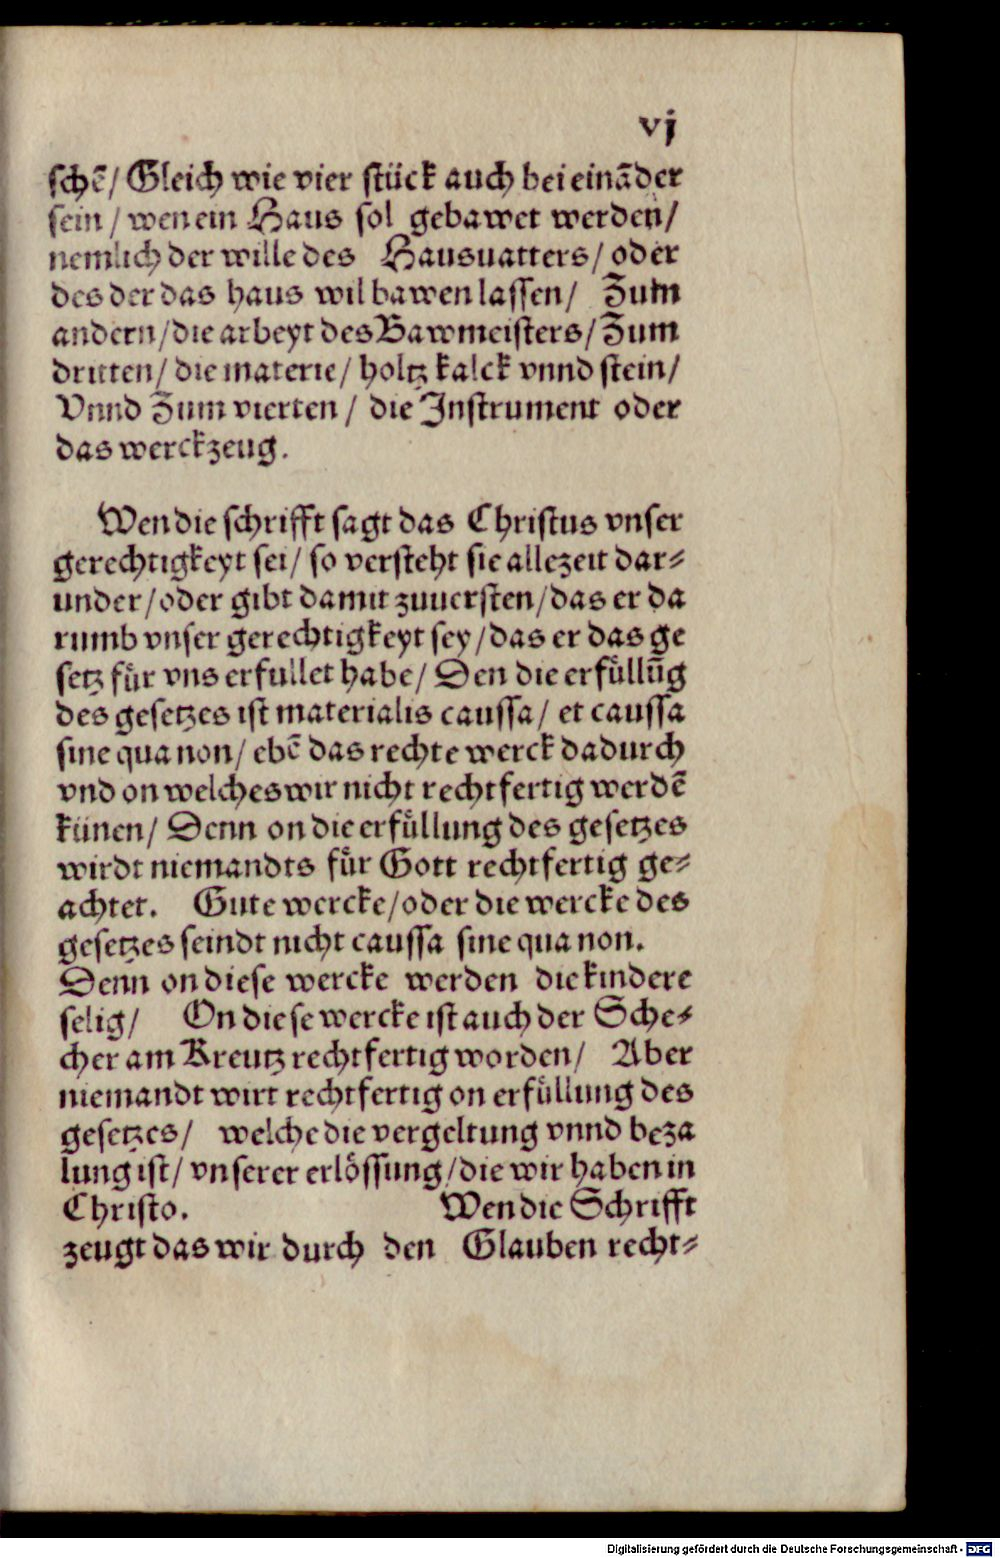 vj
schē/ Gleich wie vier stück auch bei eināder
sein / wen ein Haus sol gebawet werden/
nemlich der wille des Hausuatters/ oder
des der das haus wil bawen lassen/ Zum
andern/die arbeyt des Bawmeisters/ Zum
dritten/ die materie/ holtz kalck vnnd stein/
Vnnd Zum vierten / die Instrument oder
das werckzeug.
Wen die schrifft sagt das Christus vnser
gerechtigkeyt sei/ so versteht sie allezeit dar⸗
under/oder gibt damit zuuersten/das er da
rumb vnser gerechtigkeyt sey/das er das ge
setz fuͤr vns erfullet habe/ Den die erfuͤllūg
des gesetzes ist materialis caussa/ et caussa
sine qua non/ ebē das rechte werck dadurch
vnd on welches wir nicht rechtfertig werdē
künen/ Denn on die erfuͤllung des gesetzes
wirdt niemandts fuͤr Gott rechtfertig ge⸗
achtet. Gute wercke/oder die wercke des
gesetzes seindt nicht caussa sine qua non.
Denn on diese wercke werden die kindere
selig/ On diese wercke ist auch der Sche⸗
cher am Kreutz rechtfertig worden/ Aber
niemandt wirt rechtfertig on erfuͤllung des
gesetzes/ welche die vergeltung vnnd beza
lung ist/ vnserer erloͤssung/die wir haben in
Christo. Wen die Schrifft
zeugt das wir durch den Glauben recht⸗
Digitalisierung gefördert durch die Deutsche Forschungsgemeinschaft - DFG